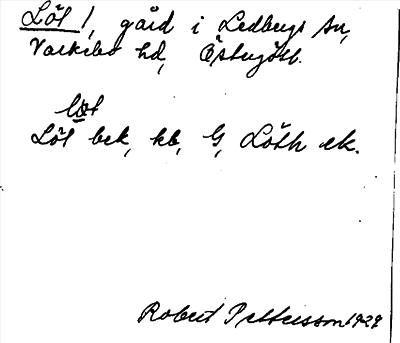 Löt /, gård i Ledbergs sn,
Valkebo hd, Östergötl.
löt
Löt bek, kb, G, Löth ek.
Robert Pettersson 1929